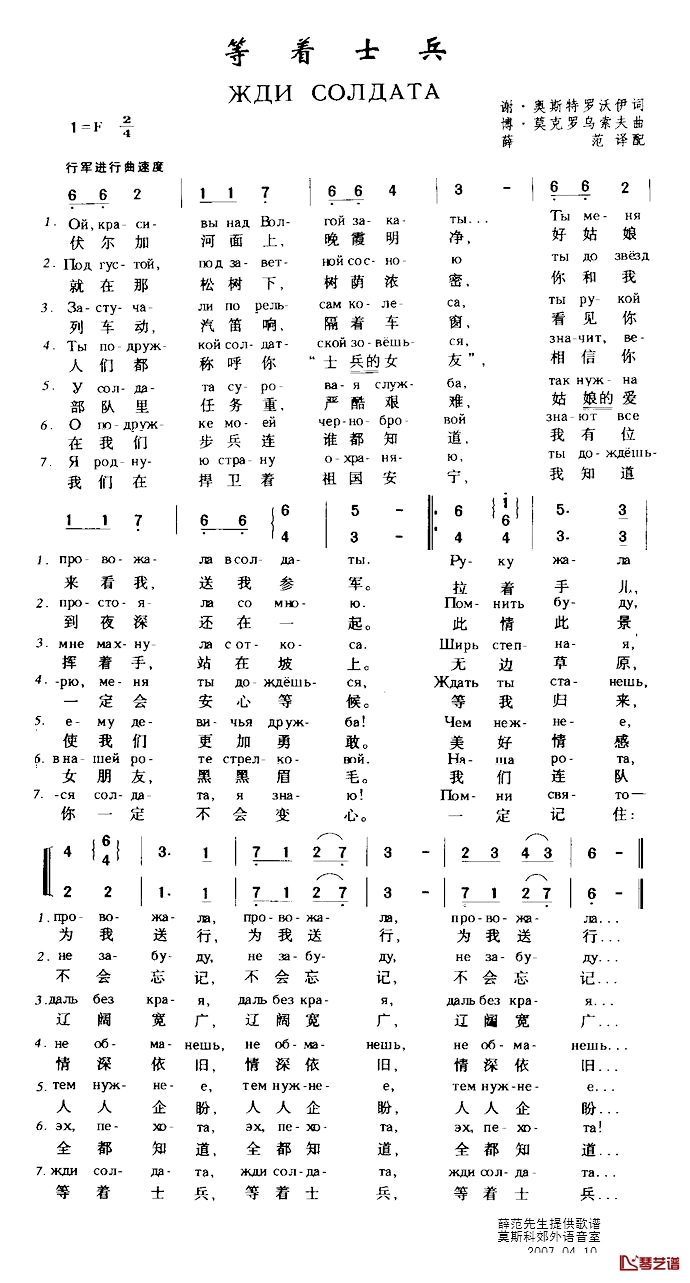 等着士兵
ЖДИ СОЛДАТА
谢·奥斯特罗沃伊词
1=F 2/4
博·莫克罗乌索夫曲
薛 范 译配
行军进行曲速度
6 6 2 | 1 1 7 | 6 6 4 | 3 - | 6 6 2
1. Ой, кра-си- вы над Вол- гой за-ка- ты... Ты ме-ня
伏尔加 河面上, 晚霞明 净, 好姑娘
2. Под гус-той, под за-вет- ной сос-но- ю ты до звёзд
就在那 松树下, 树荫浓 密, 你和我
3. За-сту-ча- ли по рель- сам ко-ле- са, ты ру-кой
列车动, 汽笛响, 隔着车 窗, 看见你
4. Ты по-друж- кой сол-дат- ской зо-вёшь- ся, зна-чит, ве-
人们都 称呼你 “士兵的女 友”, 相信你
5. У сол-да- та су-ро- ва-я служ- ба, так нуж-на
部队里 任务重, 严酷艰 难, 姑娘的爱
6. О по-друж- ке мо-ей чер-но-бро- вой зна-ют все
在我们 步兵连 谁都知 道, 我有位
7. Я род-ну- ю стра-ну о-хра-ня- ю, ты до-ждёшь-
我们在 捍卫着 祖国安 宁, 我知道
1 1 7 | 6 6 6 4 | 5 3 - 6 4 1 6 4 | 5. 3. 3 3
1. про-во-жа- ла в сол-да- ты. Ру-ку жа-ла
来看我, 送我参 军。 拉着手儿,
2. про-сто-я- ла со мно- ю. Пом-нить бу-ду,
到夜深 还在一 起。 此情此景
3. мне мах-ну- ла с от-ко- са. Ширь степ-на-я,
挥着手, 站在坡 上。 无边草原,
4. -рю, ме-ня ты до-ждёшь- ся, Ждать ты ста-нешь,
一定会 安心等 候。 等我归来,
5. е-му де- ви-чья друж- ба! Чем неж-не-е,
使我们 更加勇 敢。 美好情感
6. в на-шей ро- те стрел-ко- вой. На-ша ро-та,
女朋友, 黑黑眉 毛。 我们连队
7. -ся сол-да- та, я зна- ю! Пом-ни свя-то—
你一定 不会变 心。 一定记住:
4 6 4 | 3. 1 | 7 1 2 7 | 3 - | 2 3 4 3 | 6 -
2 2 | 1. 1 | 7 1 2 7 | 3 - | 7 1 2 7 | 6 -
1. про-во-жа-ла, про-во-жа-ла, про-во-жа-ла...
为我送行, 为我送行, 为我送行...
2. не за-бу-ду, не за-бу-ду, не за-бу-ду...
不会忘记, 不会忘记, 不会忘记...
3. даль без кра-я, даль без кра-я, даль без кра-я...
辽阔宽广, 辽阔宽广, 辽阔宽广...
4. не об-ма-нешь, не об-ма-нешь, не об-ма-нешь...
情深依旧, 情深依旧, 情深依旧...
5. тем нуж-не-е, тем нуж-не-е, тем нуж-не-е...
人人企盼, 人人企盼, 人人企盼...
6. эх, пе-хо-та, эх, пе-хо-та, эх, пе-хо-та!
全都知道, 全都知道, 全都知道...
7. жди сол-да-та, жди сол-да-та, жди сол-да-та
等着士兵, 等着士兵, 等着士兵...
薛范先生提供歌谱
莫斯科郊外语音室
2007.04.10
琴艺谱